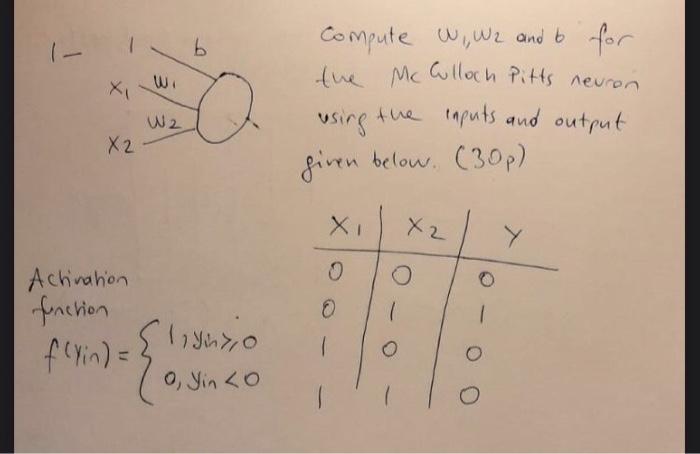 1- 1 b
X1 W1
W2
X2
Compute W1, W2 and b for
the Mc Culloch Pitts neuron
using the inputs and output
given below. (30p)
X1 X2 Y
0 0 0
0 1 1
1 0 0
1 1 0
Activation
function
f(yin) = { 1, yin ≥ 0
0, yin < 0